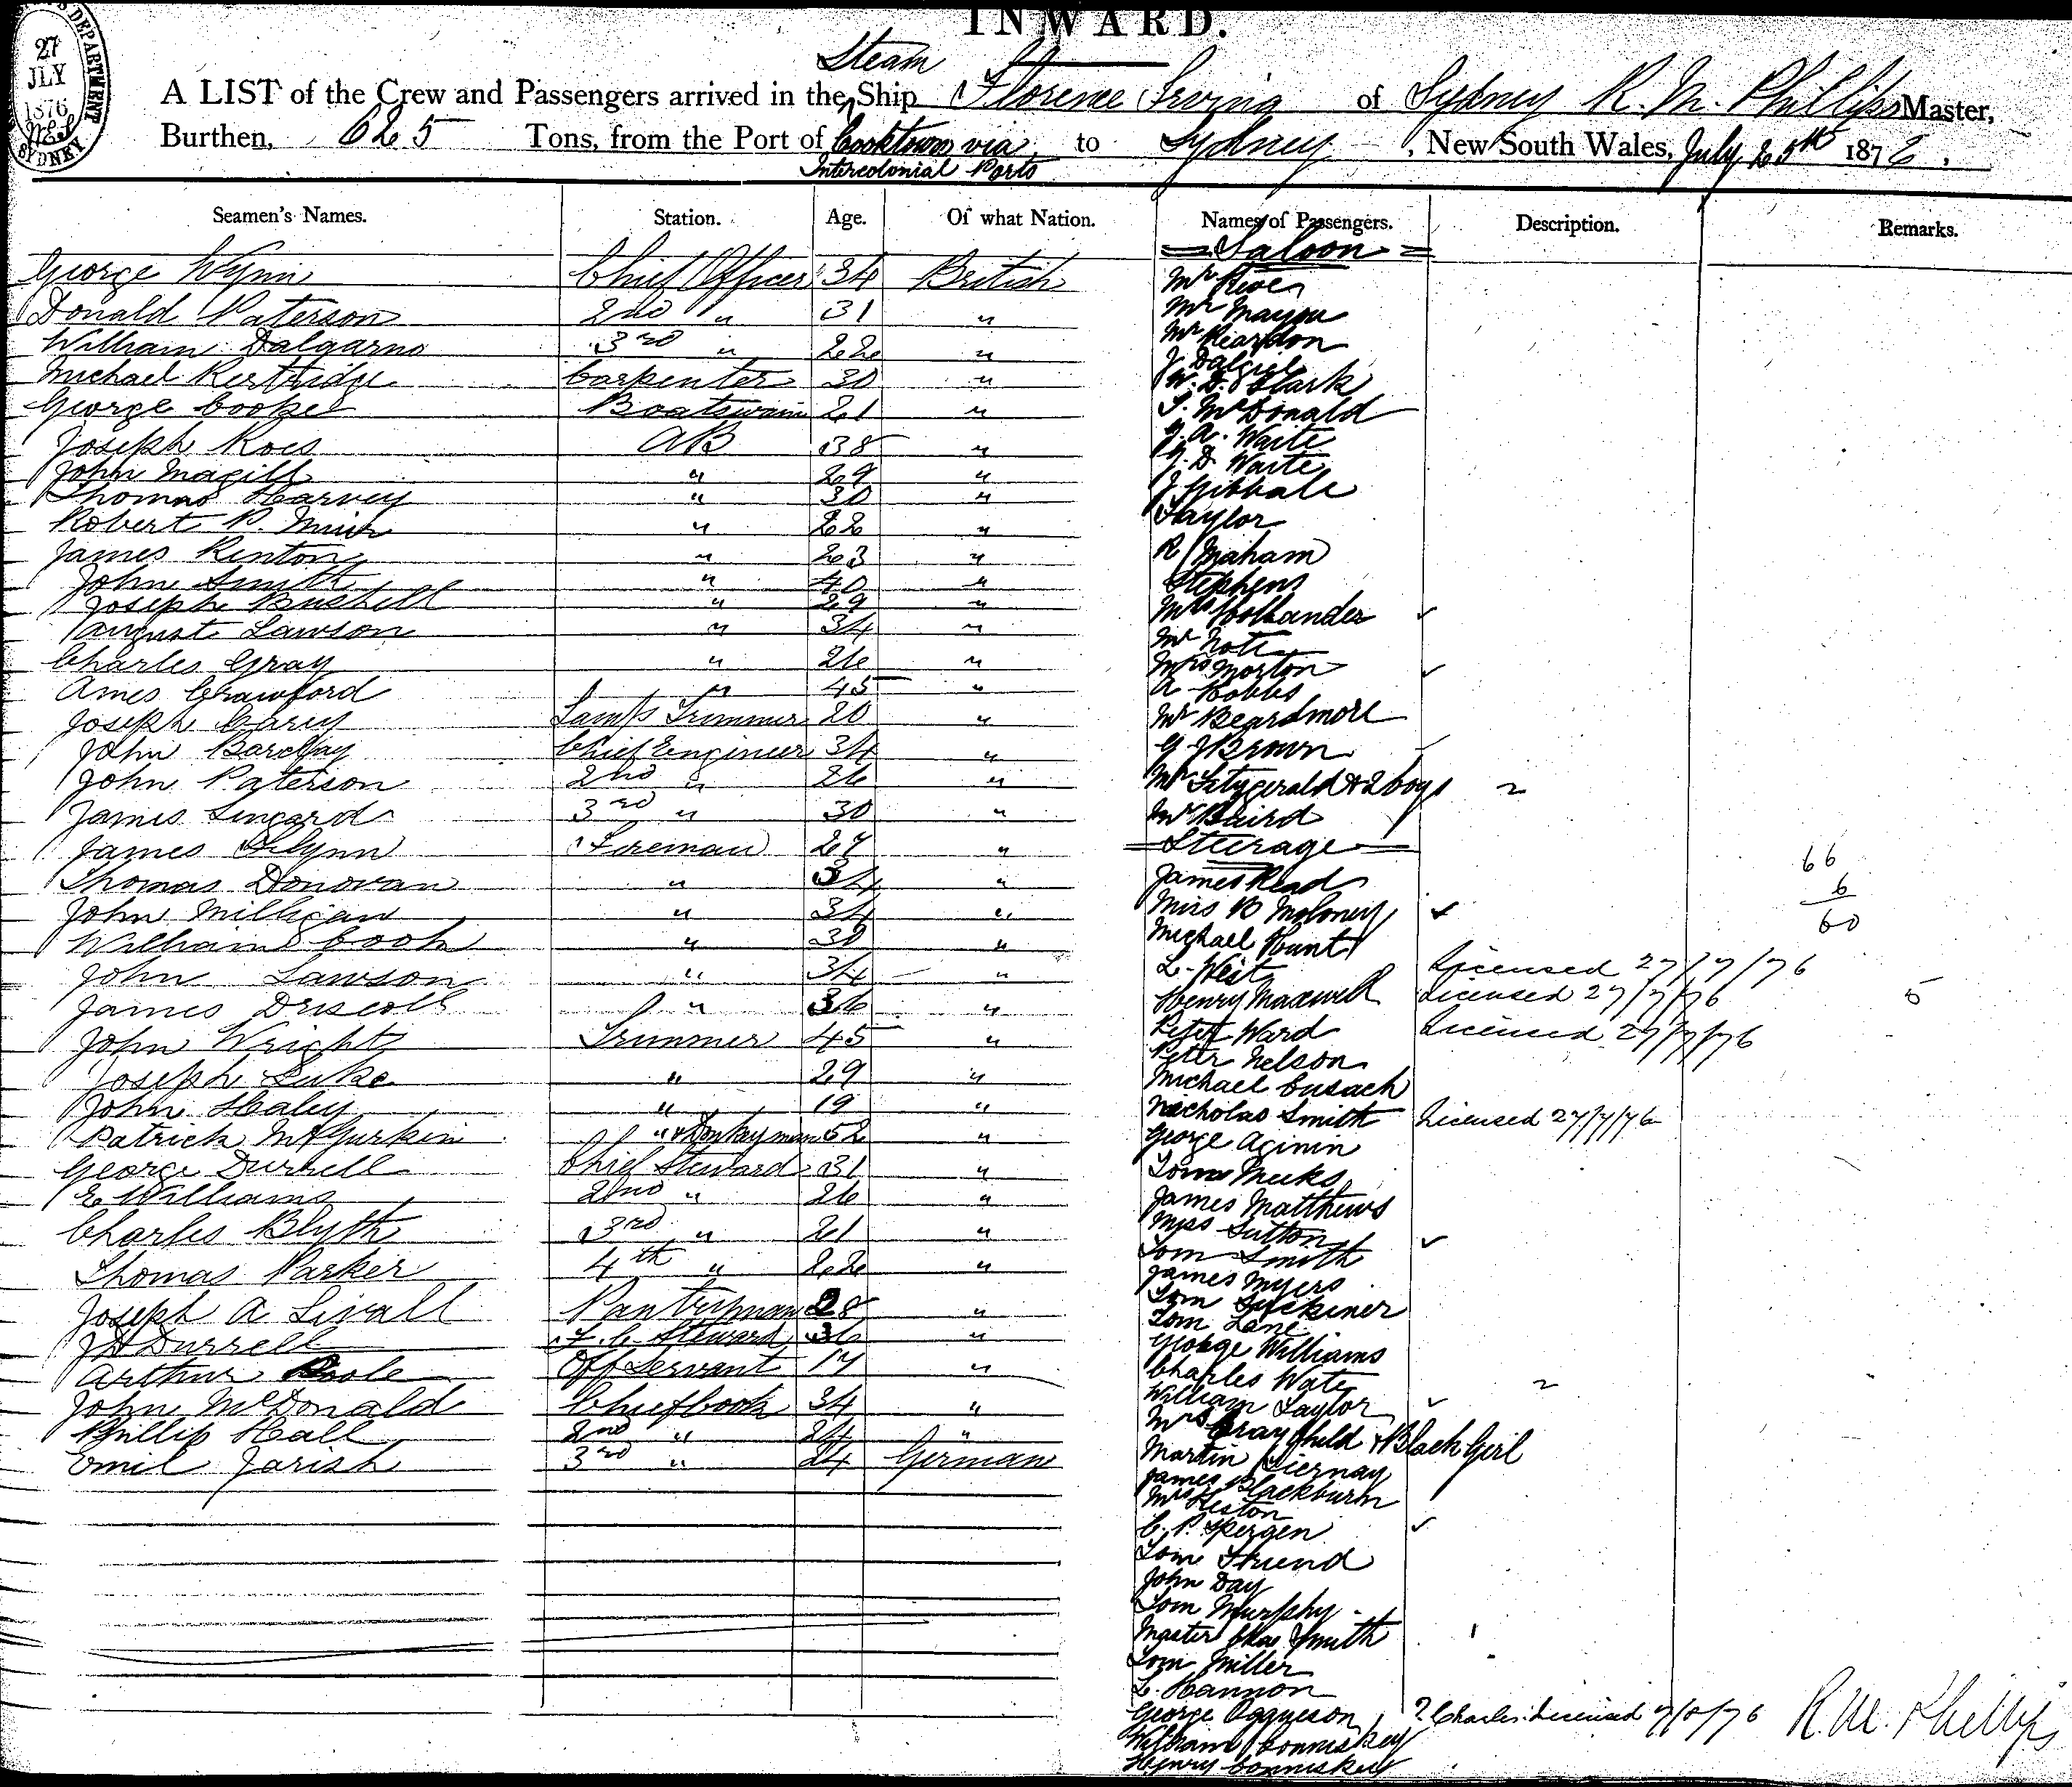 INWARD.
DEPARTMENT
27
JLY
1876
SYDNEY
Steam
A LIST of the Crew and Passengers arrived in the Ship Florence Irving of Sydney R. M. Phillips Master,
Burthen, 625 Tons, from the Port of Cooktown via to Sydney, New South Wales, July 25th 1876.
Intercolonial Ports
Seamen's Names. Station. Age. Of what Nation. Names of Passengers. Description. Remarks.
George Wynn Chief Officer 34 British
Donald Paterson 2nd " 31 "
William Dalgarno 3rd " 22 "
Michael Kertridge Carpenter 30 "
George Cooke Boatswain 21 "
Joseph AB 38 "
John Magill " 29 "
Thomas Harvey " 30 "
Robert P. Muir " 22 "
James Renton " 23 "
John Smith " 40 "
Joseph Bushell " 29 "
August Lawson " 34 "
Charles Gray " 26 "
Ames Crawford " 45 "
Joseph Carey Lamp Trimmer 20 "
John Barclay Chief Engineer 34 "
John Paterson 2nd " 26 "
James 3rd " 30 "
James Flynn Fireman 27 "
Thomas Donovan " 34 "
John Milligan " 34 "
William Cook " 30 "
John Lawson " 34 "
James Driscoll " 36 "
John Wright Trimmer 45 "
Joseph Luke " 29 "
John Haley " 19 "
Patrick McGurkin " & Donkeyman 52 "
George Durrell Chief Steward 31 "
E Williams 2nd " 26 "
Charles Blyth 3rd " 21 "
Thomas Parker 4th " 22 "
Joseph A Sivall Pantryman 28 "
J H Durrell F. C. Steward 36 "
Arthur Poole Off Servant 17 "
John McDonald Chief Cook 34 "
Phillip Hall 2nd " 24 "
Emil Jarish 3rd " 24 German
Saloon
Mr
Mr Mayou
Mr Reardon
J. Dalgiel
W. D. Clark
T. McDonald
J. A. Waite
G. D. Waite
J Gibbale
Taylor
R Graham
Stephens
Mrs Hollander
Mr
Mrs Morton
A Hobbs
Mr Beardmore
G J Brown
Mr Fitzgerald & 2 boys
Mr Baird
Steerage
James Read
Miss B Moloney
Michael Hunt
L. West Licensed 27/7/76
Henry Maxwell Licensed 27/7/76 5
Peter Ward Licensed 27/7/76
Peter Nelson
Michael Cusack
Nicholas Smith Licensed 27/7/76
George Aginin
Tom Meeks
James Matthews
Miss Sutton
Tom Smith
James Myers
Tom
Tom Lane
George Williams
Charles Wate
William Taylor
Mrs Gray Child & Black Girl
Martin Tiernay
James Blackburn
Mrs Heston
C. P.
Tom Friend
John Day
Tom Murphy
Master Chas Smith
Tom Miller
L. Hannon
George ? Charles Licensed 7/8/76
William Conniskey
Henry Conniskey
66
6
60
R M. Phillips